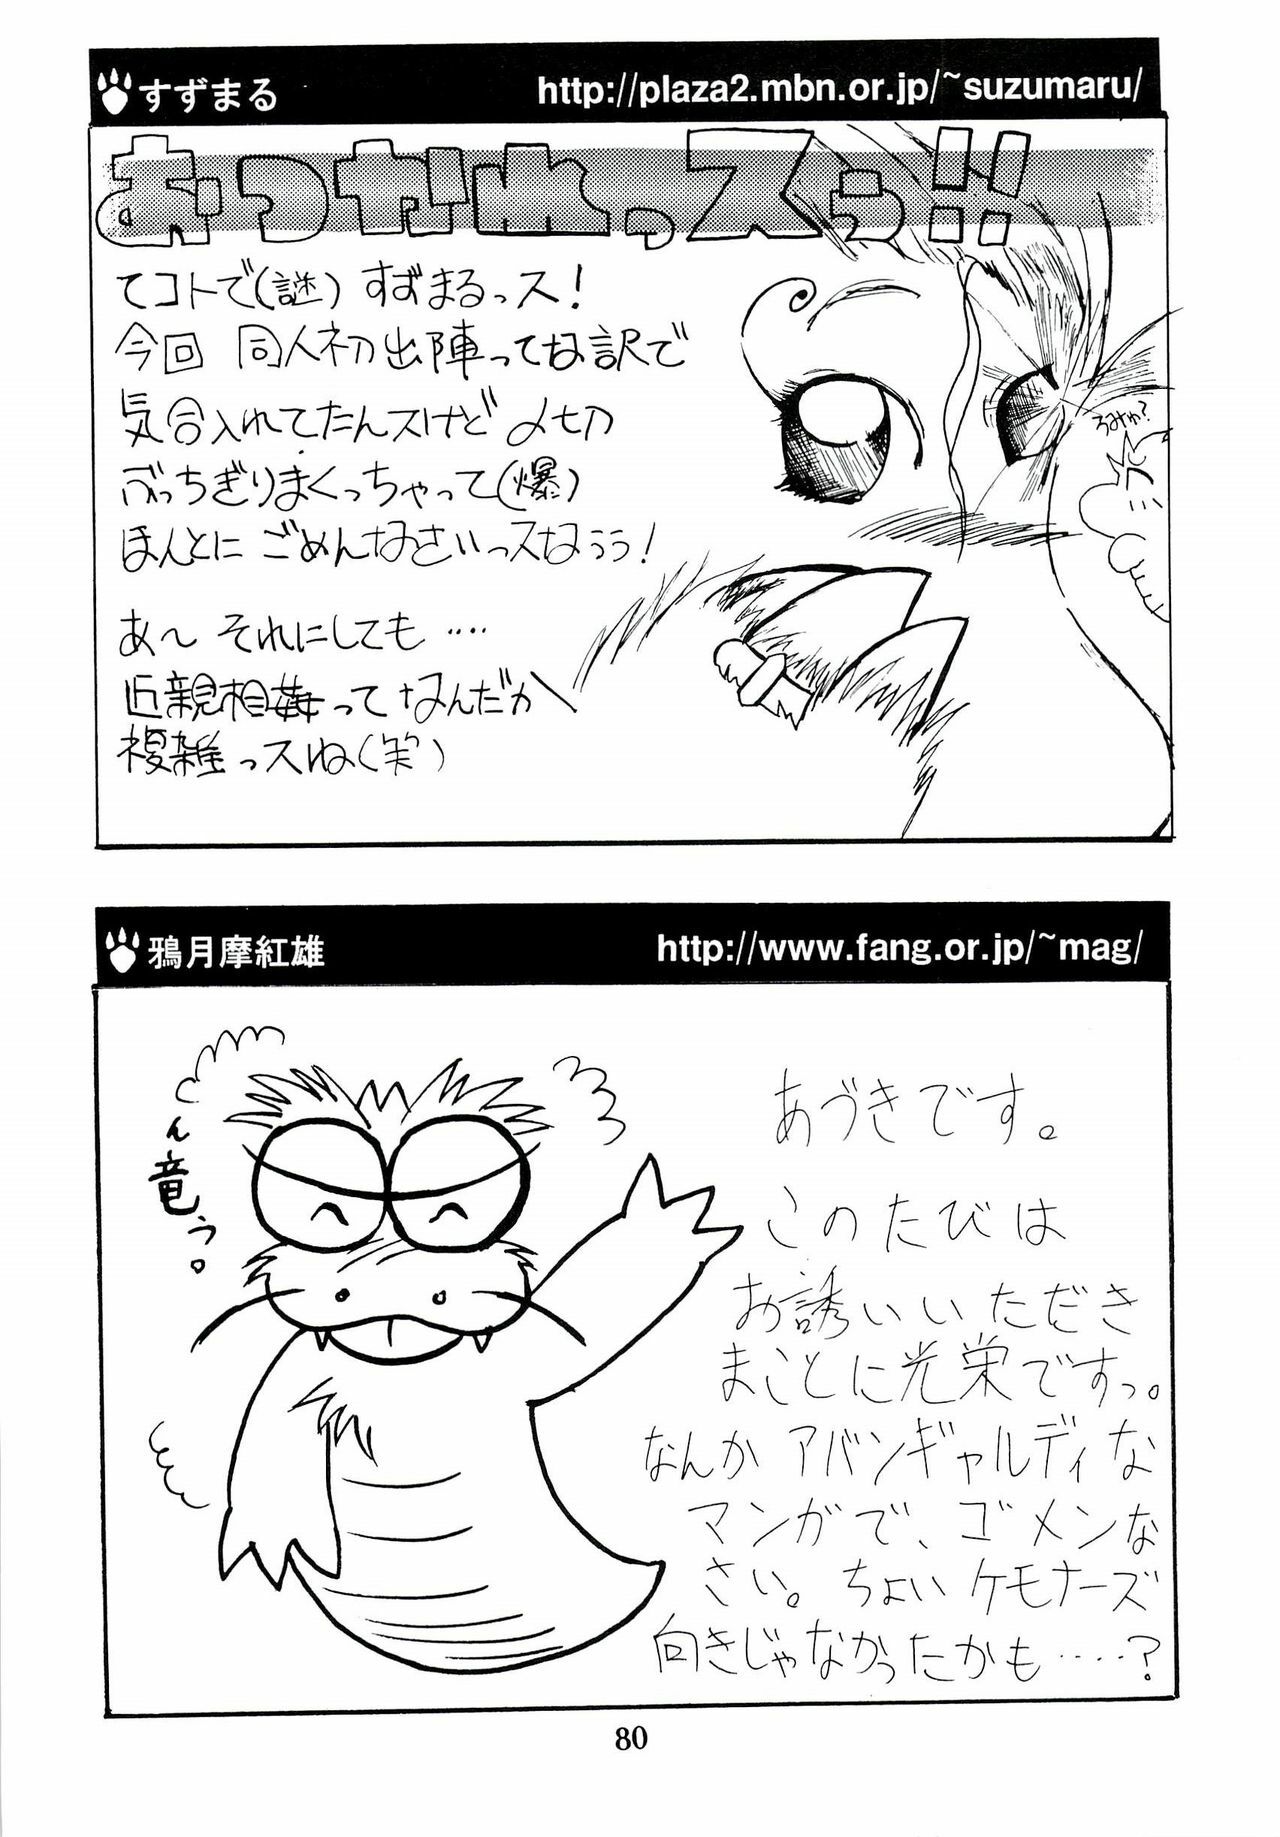 すずまる
http://plaza2.mbn.or.jp/~suzumaru/
おつかれっスぅ!!
てコトで(謎) すずまるっス!
今回 同人初出陣ってな訳で
気合入れてたんスけど〆切
ぶっちぎりまくっちゃって(爆)
ほんとに ごめんなさいっスなぅぅ!
あ〜 それにしても ‥‥
近親相姦って なんだか
複雑っスね(笑)
鴉月摩紅雄
http://www.fang.or.jp/~mag/
あづきです。
このたびは
お誘いいただき
まことに光栄ですっ。
なんか アバンギャルディな
マンガで、ゴメンな
さい。ちょい ケモナーズ
向きじゃなかったかも‥‥‥?
80